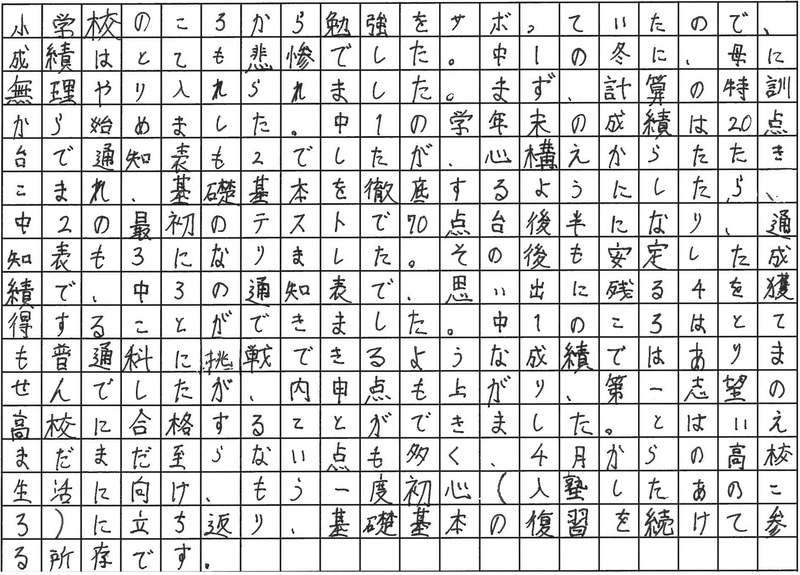 小学校のころから勉強をサボっていたので、
成績はとても悲惨でした。中1の冬に、母に
無理やり入れられました。まず、計算の特訓
から始めました。中1の学年末の成績は20点
台で通知表も2でしたが、心構えからたたき
こまれ、基礎基本を徹底するようにしたら、
中2の最初のテストで70点台後半になり、通
知表も3になりました。その後も安定した成
績で、中3の通知表で、思い出に残る4を獲
得することができました。中1のころはとて
も普通科に挑戦できるような成績ではありま
せんでしたが、内申点も上がり、第一志望の
高校に合格することができました。とはいえ
まだまだ至らない点も多く、4月からの高校
生活に向け、もう一度初心(入塾したあのこ
ろ)に立ち返り、基礎基本の復習を続けて参
る所存です。